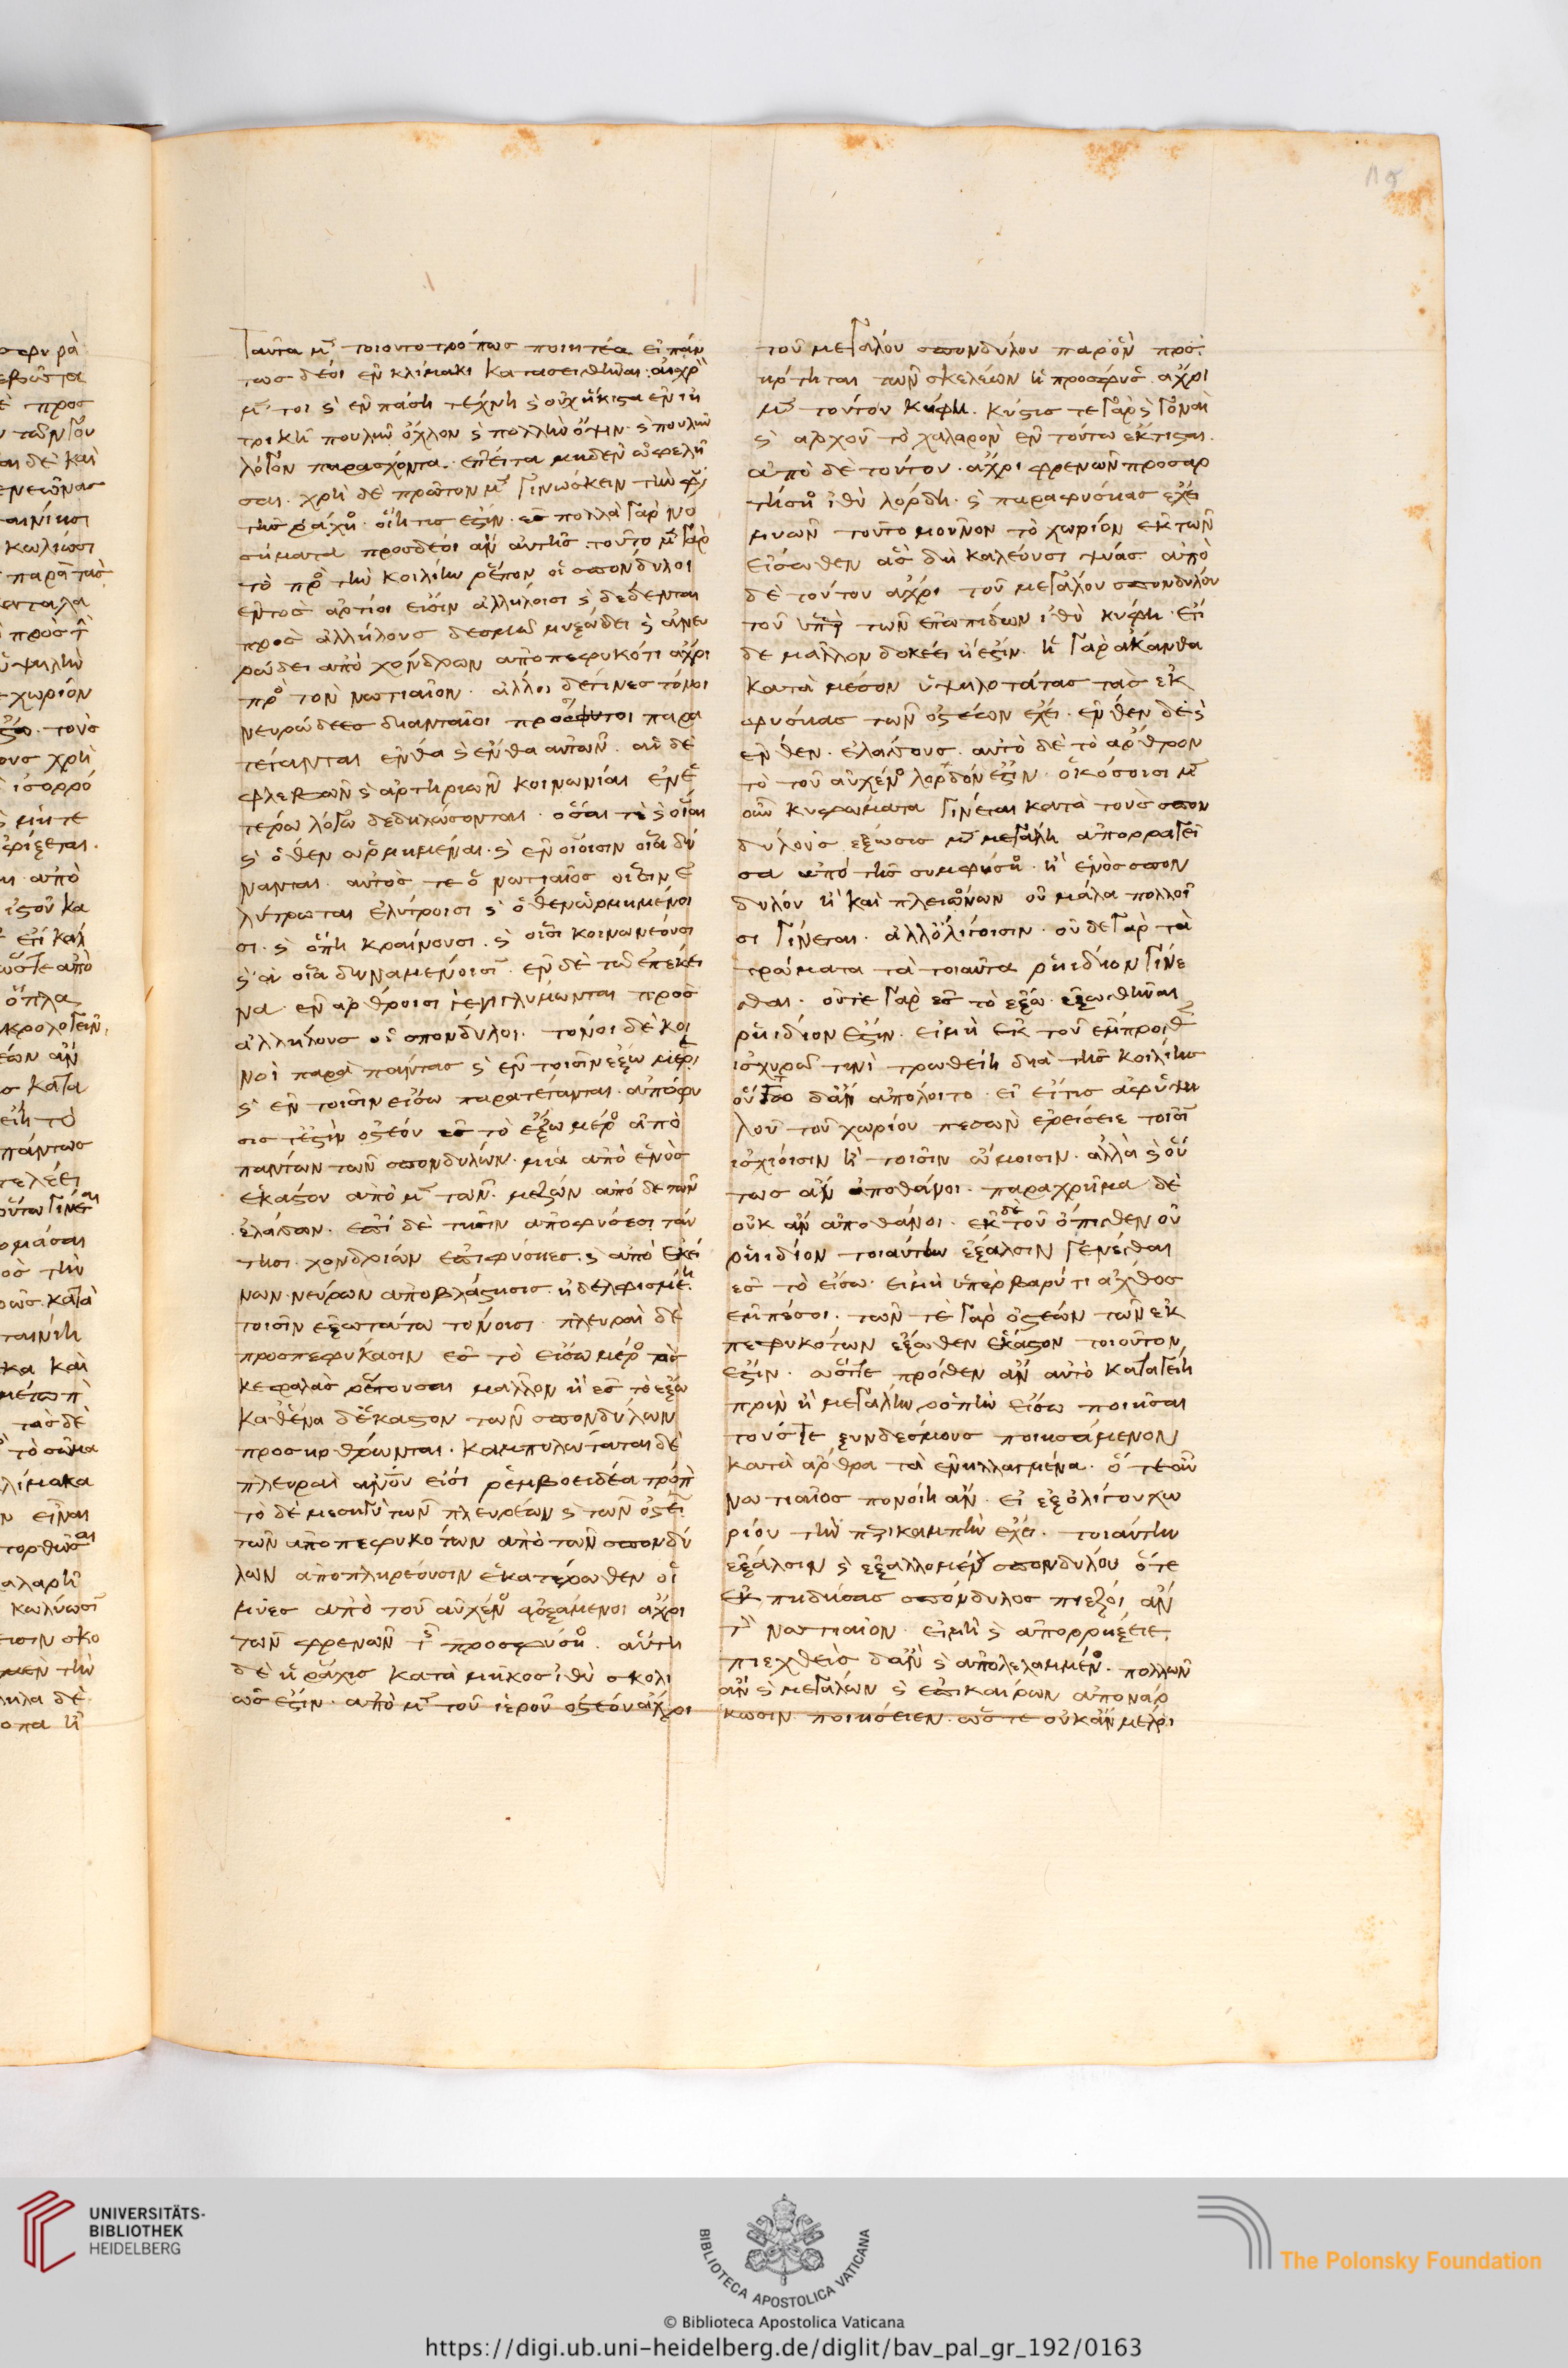 προς
δὲ καὶ
κωλύωσι
χωρίον
τοὺς
χρὴ
ἰσορρό
μήτε
ἀπὸ
ὅπλα
πάντως
τελέει
τὴν
κατὰ
καὶ
τὸ σῶμα
κλίμακα
εἶναι
κωλύωσι
Ταῦτα μ̀ τοιουτοτρόπως ποιητέα εἰ πάν
τως δέοι ἐν κλίμακι κατασεισθῆναι· αἰσχρὸ
μ̀ τοι ϛ̀ ἐν πάσῃ τέχνῃ ϛ̀ οὐχ ἥκιϛα ἐν ἰη
τρικῆ πουλὺν ὄχλον ϛ̀ πολλὴν ὄψιν· ϛ̀ πουλὺν
λόγον παρασχόντα. ἔπειτα μηδὲν ὠφελῆ
σαι. χρὴ δὲ πρῶτον μ̀ γινώσκειν τὴν φύ
τῆς ῥάχιο. οἵη τις ἐϛίν. ἐς πολλὰ γὰρ νο
σήματα προσδέοι ἂν αὐτῆς. τοῦτο μ̀ γὰρ
τὸ πρὸ τὴν κοιλίην ῥέπον οἱ σπονδυλοι
ἐντὸς ἄρτιοι εἰσὶν ἀλλήλοισι ϛ̀ δέδενται
προς ἀλλήλους δεσμῶ μυξώδει ϛ̀ ἀνευ
ρώδει ἀπὸ χόνδρων ἀποπεφυκότι ἄχρι
πρὸ τὸν νωτιαῖον. ἄλλοι δέ τινες τόνοι
νευρώδεες διανταῖοι πρόσφυτοι παρα
τέτανται ἔνθα ϛ̀ ἔνθα αὐτῶν. αἱ δὲ
φλεβῶν ϛ̀ ἀρτηριῶν κοινωνίαι ἐν ἑ
τέρω λόγω δεδηλώσονται. ὅσαι τὲ ϛ̀ οἷαι
ϛ̀ ὅθεν ὡρμημέναι. ϛ̀ ἐν οἵοισιν οἷα δύ
νανται. αὐτὸς τε ὁ νωτιαῖος οἷσιν ἐ
λύτρωται ἐλύτροισι ϛ̀ ὅθεν ὡρμημένοι
σι. ϛ̀ ὅπη κραίνουσι. ϛ̀ οἷσι κοινωνέουσι
ϛ̀ οἷα δυναμένοισι. ἐν δὲ τῶ ἐπέκει
να ἐν ἄρθροισι γεγιγλύμωνται προς
ἀλλήλους οἱ σπόνδυλοι. τόνοι δὲ κοι
νοὶ παρὰ πάντας ϛ̀ ἐν τοισιν ἔξω μέρ
ϛ̀ ἐν τοισιν εἴσω παρατέτανται. ἀπόφυ
σις τέ ἐϛὶν ὀϛέου ἐς τὸ ἔξω μέρο ἀπὸ
πάντων τῶν σπονδύλων. μία ἀπὸ ἑνὸς
ἑκάϛου ἀπὸ μ̀ τῶν μειζόνων ἀπὸ δὲ τῶν
ἐλασσόνων. ἐπὶ δὲ τῆσιν ἀποφύσεσι ταύ
τησι χονδρίων ἐπιφύσιες. ϛ̀ ἀπὸ ἐκεί
νων νεύρων ἀποβλάϛησις ἠδελφισμέ
τοισιν ἐξωτάτω τόνοισι. πλευραὶ δὲ
προσπεφύκασιν ἐς τὸ εἴσω μέρο τὰς
κεφαλὰς ῥέπουσαι μᾶλλον ἢ ἐς τὸ ἔξω
καθ' ἕνα δὲ ἕκαϛον τῶν σπονδύλων
προσηρθρωνται. καμπυλώταται δὲ
πλευραὶ ἀνου εἰσι ῥεμβοειδέα τρόπ
τὸ δὲ μεσηγὺ τῶν πλευρέων ϛ̀ τῶν ὀϛέ
τῶν ἀποπεφυκότων ἀπὸ τῶν σπονδύ
λων ἀποπληρέουσιν ἑκατέρωθεν οἱ
μύες ἀπὸ τοῦ αὐχένο ἀρξάμενοι ἄχρι
τῶν φρενῶν τς προσφύσιο. αὕτη
δὲ ἡ ῥάχις κατὰ μῆκος ἰθὺ σκολι
ώς ἐϛιν. ἀπὸ μ̀ τοῦ ἱεροῦ ὀϛέου ἄχρι
τοῦ μεγάλου σπονδύλου παρ' ὃν προσ
ήρτηται τῶν σκελέων ἡ πρόσφυς ἄχρι
μ̀ τούτου κυφη. κύϛις τε γὰρ ϛ̀ γοναὶ
ϛ̀ ἀρχοῦ τὸ χαλαρὸν ἐν τούτω ἔκτιϛαι.
ἀπὸ δὲ τούτου ἄχρι φρενῶν προσαρ
τήσιο ἰθὺ λορδη. ϛ̀ παραφύσιας ἔχει
μυῶν τοῦτο μοῦνον τὸ χωρίον ἐκ τῶν
εἴσωθεν ἃς δὴ καλέουσι ψύας ἀπὸ
δὲ τούτου ἄχρι τοῦ μεγάλου σπονδύλου
τοῦ ὑπὲρ τῶν ἐπωμίδων ἰθὺ κυφη. ἔτι
δε μᾶλλον δοκέει ἢ ἔϛιν. ἡ γὰρ ἄκανθα
κατὰ μέσον ὑψηλοτάτας τὰς ἐκ
φύσιας τῶν ὀϛέων ἔχει. ἔνθεν δὲ ϛ̀
ἔνθεν. ἐλάσσους. αὐτὸ δὲ τὸ ἄρθρον
τὸ τοῦ αὐχένο λορδόν ἐϛιν. ὁκόσοισι μ̀
οὖν κυφώματα γίνεται κατὰ τοὺς σπον
δύλους ἔξωσις μ̀ μεγάλη ἀπορραγεῖ
σα ἀπὸ τῆς συμφύσιο. ἢ ἑνὸς σπον
δύλου ἢ καὶ πλειόνων οὐ μάλα πολλοῖ
σι γίνεται. ἀλλ' ὀλίγοισιν. οὐδὲ γὰρ τὰ
τρώματα τὰ τοιαῦτα ῥηίδιον γίνε
σθαι. οὔτε γὰρ ἐς τὸ ἔξω ἐξωσθῆναι
ῥηίδιον ἐϛιν. εἰ μὴ ἐκ τοῦ ἔμπροσθ
ἰσχυρῶ τινὶ τρωθείη διὰ τῆς κοιλίης
οὕτω δ' ἂν ἀπόλοιτο. εἰ εἴ τις ἀφ' ὑψη
λοῦ τοῦ χωρίου πεσὼν ἐρείσειε τοισι
ἰσχίοισιν ἢ τοῖσιν ὤμοισιν. ἀλλὰ ϛ̀ οὕ
τως ἂν ἀποθάνοι. παραχρῆμα δὲ
οὐκ ἂν ἀποθάνοι. ἐκ δὲ τοῦ ὄπισθεν οὐ
ῥηίδιον τοιαύτην ἐξάλσιν γενέσθαι
ἐς τὸ εἴσω. εἰ μὴ ὑπέρβαρύ τι ἄχθος
ἐμπέσοι. τῶν τε γὰρ ὀϛέων τῶν ἐκ
πεφυκότων ἔξωθεν ἕκαϛον τοιοῦτον
ἐϛιν. ὥϛε πρόσθεν ἂν αὐτὸ καταγείη
πρὶν ἢ μεγάλην ῥοπὴν εἴσω ποιῆσαι
τούς τε ξυνδέσμους ποιησάμενον
κατὰ ἄρθρα τὰ ἐνηλλαγμένα. ὅ τε οὖν
νωτιαῖος πονοίη ἄν. εἰ ἐξ ὀλίγου χω
ρίου τὴν πρικαμπὴν ἔχει. τοιαύτην
ἐξάλσιν ϛ̀ ἐξαλλομένου σπονδύλου ὅτε
ἐκπηδήσας σπόνδυλος πιέζοι ἂν
τ νωτιαῖον. εἰ μὴ ϛ̀ ἀπορρήξειε.
πιεχθεὶς δ' ἂν ϛ̀ ἀπολελαμμένο. πολλῶν
ἂν ϛ̀ μεγάλων ϛ̀ ἐπικαίρων ἀπονάρ
κωσιν ποιήσειεν. ὥϛε οὐκ ἂν μέλοι
UNIVERSITÄTS-
BIBLIOTHEK
HEIDELBERG
BIBLIOTECA APOSTOLICA VATICANA
The Polonsky Foundation
© Biblioteca Apostolica Vaticana
https://digi.ub.uni-heidelberg.de/diglit/bav_pal_gr_192/0163